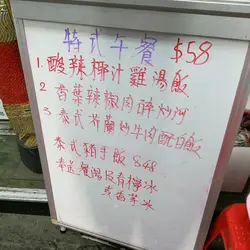 特式午餐 $58
1. 酸辣椰汁雞湯飯
2. 香葉辣椒肉碎炒河
3 泰式芥蘭炒牛肉配白飯
泰式豬手飯 $48
奉送餐湯及有檸冰
或香茅冰